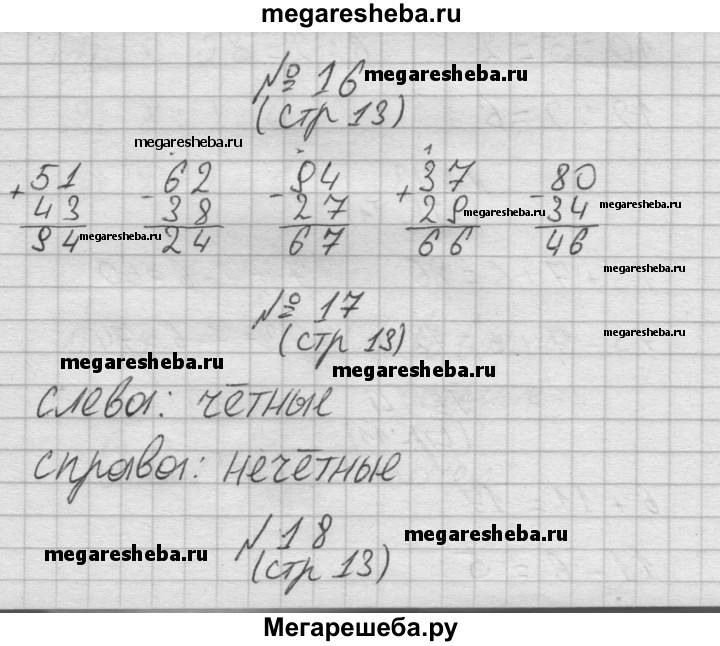 megaresheba.ru
№ 16 megaresheba.ru
(стр 13)
megaresheba.ru
+ 51 - 62 - 94 + 37 - 80
43 38 27 29 megaresheba.ru 34 megaresheba.ru
94 megaresheba.ru 24 67 66 46
megaresheba.ru
№ 17
(стр 13) megaresheba.ru
megaresheba.ru megaresheba.ru
слева: чётные
справа: нечётные
N 18 megaresheba.ru
megaresheba.ru (стр 13)
Мегарешеба.ру